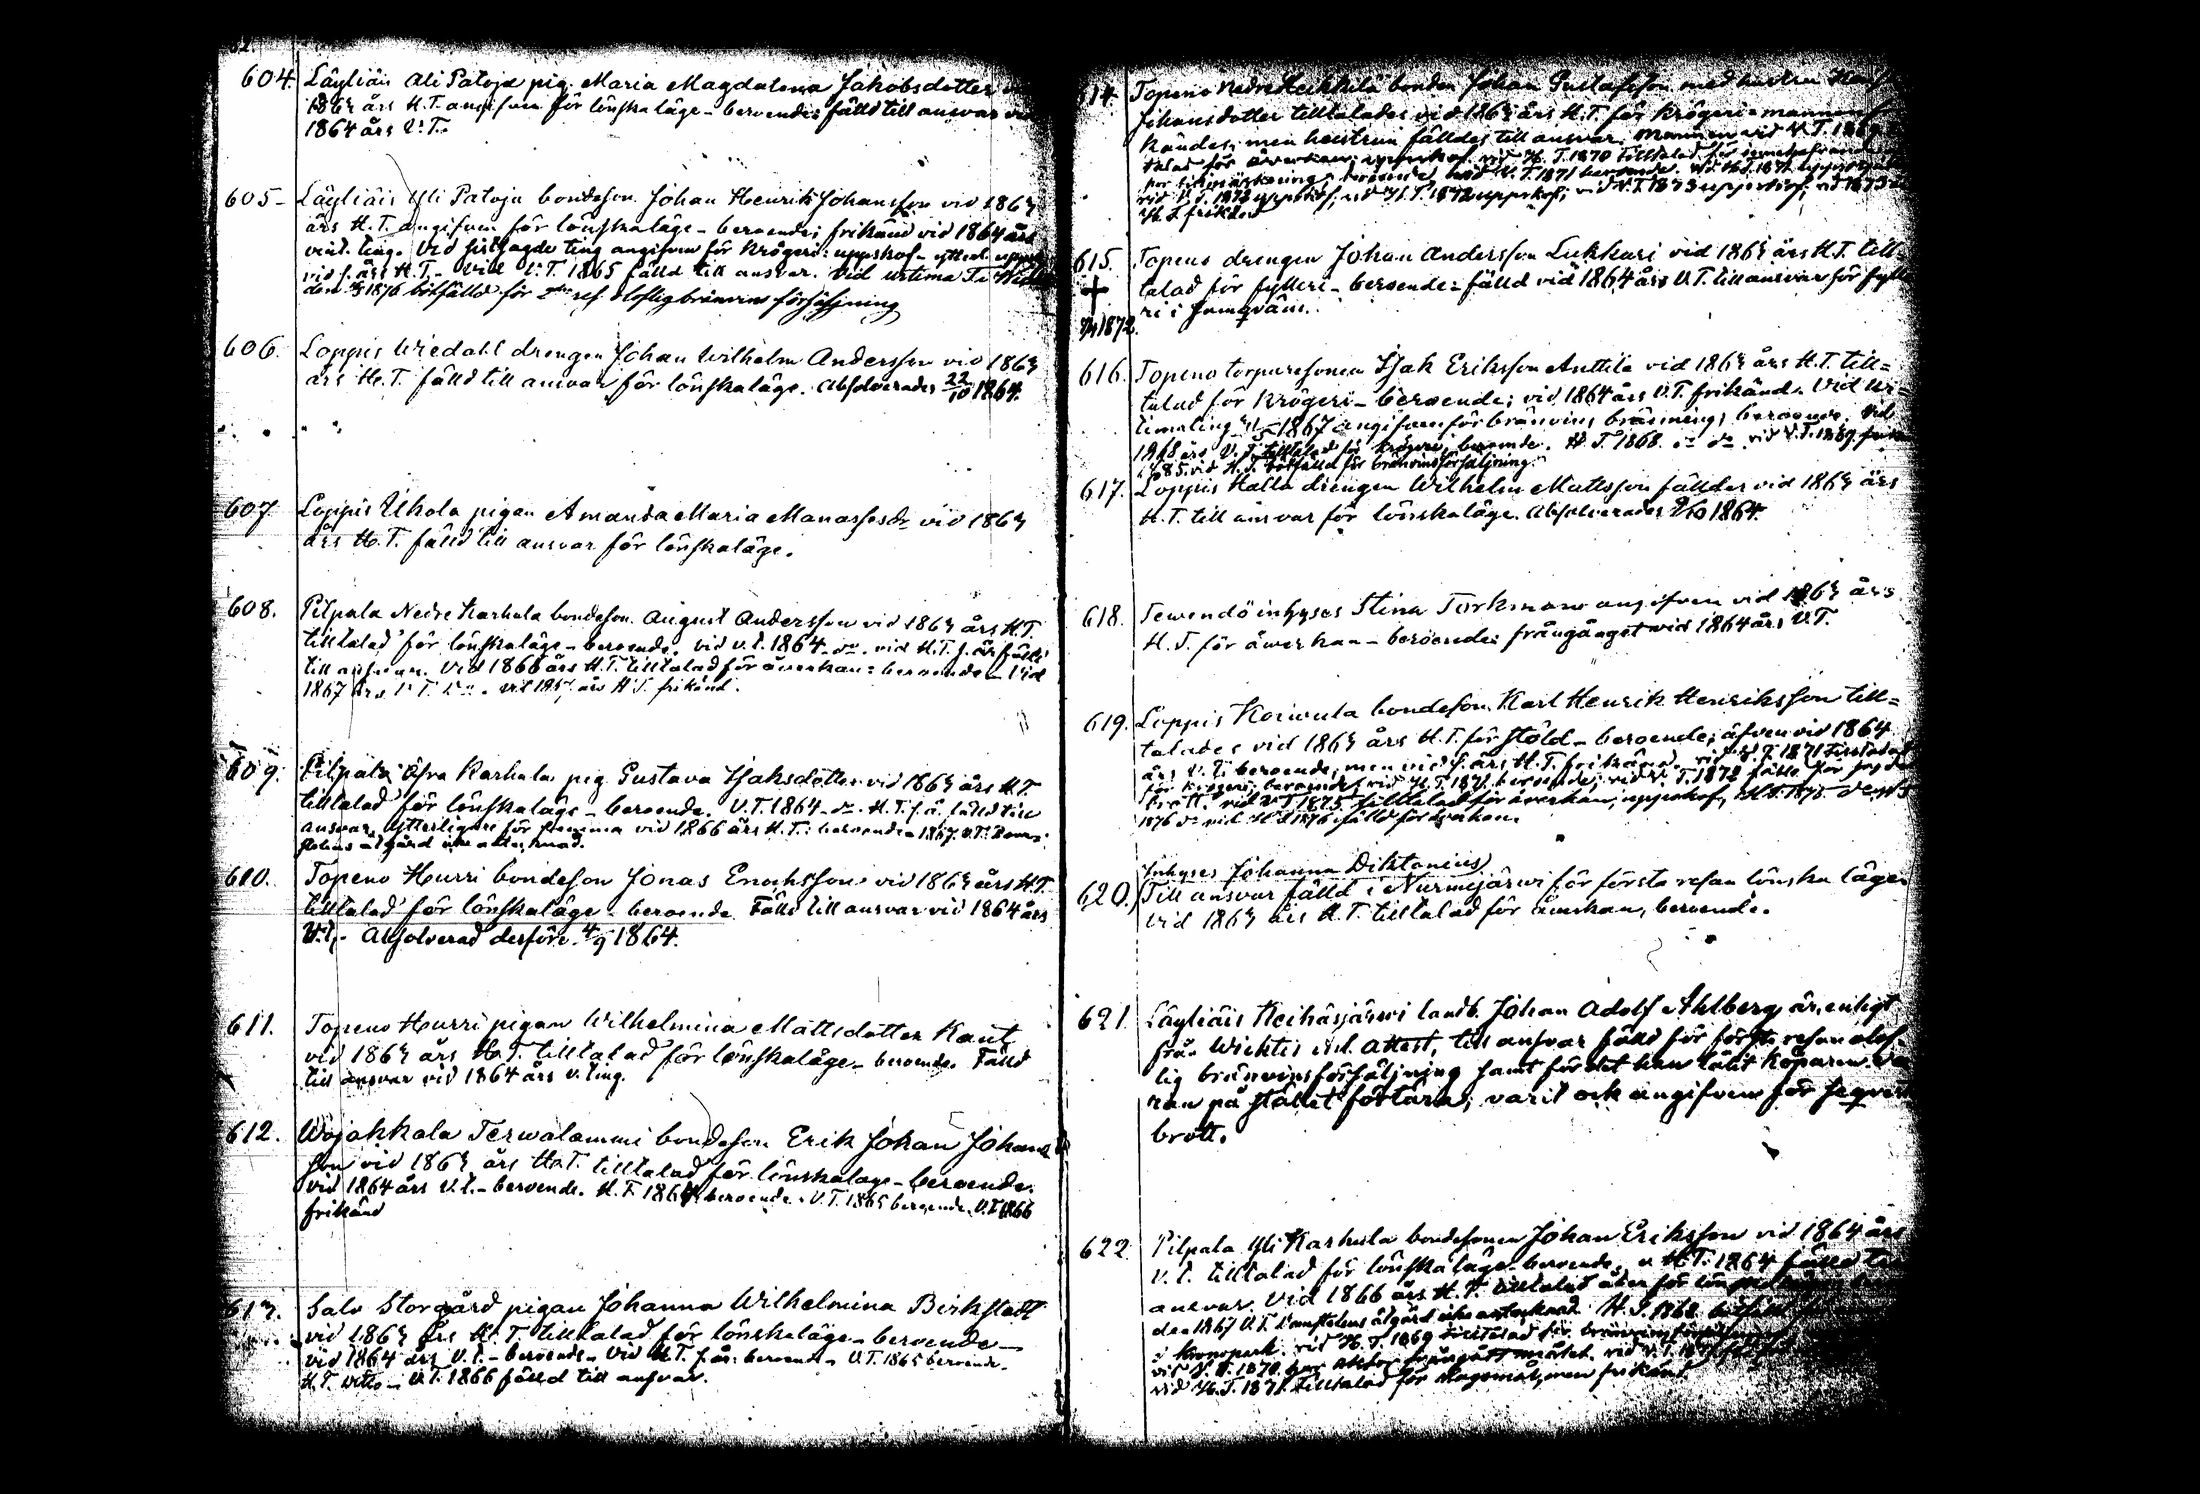 604. Läyliäis Ali Patoja pig. Maria Magdalena Jakobsdotter
1863 års H.T. angifven för lönskaläge - beroende; fälld till ansvar vid
1864 års V.T.
605 - Läyliäis Yli Patoja bondeson Johan Henrik Johansson vid 1863
års H.T. angifven för lönskaläge - beroende; frikänd vid 1864 års
vint. ting. Vid sistsagde ting angifven för krögeri: uppskof -
vid s. års H.T. - Vid V.T. 1865 fälld till ansvar. Vid urtima T.
1876 bötfälld för resf oloflig bränvins försäljning
606. Loppis Wiedahl drengen Johan Wilhelm Andersson vid 1863
års H.T. fälld till ansvar för lönskaläge. Absolverades 22/10 1864.
607 Loppis Uhola pigan Amanda Maria Manassesdr vid 1863
års H.T. fälld till ansvar för lönskaläge.
608. Pilpala Nedre Karhula bondeson August Andersson vid 1863 års H.T.
tilltalad för lönskaläge - beroende. vid V.T. 1864 do. vid H.T. s. år fälld
till ansvar. Vid 1866 års H.T. tilltalad för åverkan: beroende - Vid
1867 års V.T. do. vid 1867 års H.T. frikänd.
609. Pilpala Öfra Karhula pig Gustava Isaksdotter vid 1863 års H.T.
tilltalad för lönskaläge - beroende. V.T. 1864 - do. H.T. s. å. fälld till
ansvar. ytterligare för samma vid 1866 års H.T.: beroende - 1867 V.T.
åtgärd icke afvaktad.
610. Topeno Hurri bondeson Jonas Enochsson vid 1863 års H.T.
tilltalad för lönskaläge - beroende. Fälld till ansvar vid 1864 års
V.T. Absolverad derföre 4/9 1864.
611. Topeno Hurri pigan Wilhelmina Mattsdotter Kant
vid 1863 års H.T. tilltalad för lönskaläge - beroende. Fälld
till ansvar vid 1864 års V. ting.
612. Wojakkala Terwalammi bondeson Erik Johan Johans
son vid 1863 års H.T. tilltalad för lönskaläge - beroende.
vid 1864 års V.T. - beroende. H.T. 1864 beroende. V.T. 1865 beroende. V.T. 1866
frikänd
613. Salo Storgård pigan Johanna Wilhelmina Birkstedt
vid 1863 års H.T. tilltalad för lönskaläge - beroende -
vid 1864 års V.T. - beroende - Vid H.T. s. år: beroende - V.T. 1865 beroende.
H.T. ditto - V.T. 1866 fälld till ansvar.
614. Topeno Nedre Heikkilä bonden Johan Gustafsson med hustru
Johansdotter tilltalades vid 1863 års H.T. för krögeri - mannen
kändes, men hustrun fälldes till ansvar. Mannen vid V.T.
talad för åverkan: uppskof. vid H.T. 1870 tilltalad för
beroende, vid V.T. 1871 beroende.
vid V.T. 1872 uppskof; vid H.T. 1872 uppskof; vid V.T. 1873 uppskof; vid 1873
H.T. frikänd
615. Topeno drengen Johan Andersson Lukkari vid 1863 års H.T. till-
talad för fylleri - beroende: fälld vid 1864 års V.T. till ansvar för fylle
ri i framqväm.
1872.
616. Topeno torparesonen Isak Eriksson Anttila vid 1863 års H.T. till=
talad för krögeri - beroende; vid 1864 års V.T. frikänd. Vid ur=
timating 1867 angifven för bränvins bränning, beroende. Vid
1868 års V.T. tilltalad för krögeri, beroende. H.T. 1868. do do. vid V.T. 1869
1885 vid H.T. bötfälld för bränvinsförsäljning.
617. Loppis Halla drengen Wilhelm Mattsson fälldes vid 1863 års
H.T. till ansvar för lönskaläge. Absolverades 2/10 1864.
618. Tewendö inhyses Stina Torkman angifven vid 1863 års
H.T. för åwerkan - beroende: frångånget vid 1864 års V.T.
619. Loppis Koiwula bondeson Karl Henrik Henriksson till=
talades vid 1863 års H.T. för stöld - beroende; äfven vid 1864
års V.T. beroende; men vid s. års H.T. frikänd. vid V.T. 1871 tilltalad
för krögeri, beroende; vid H.T. 1871 beroende; vid V.T. 1872 fälld för
brott. vid V.T. 1875 tilltalad för åverkan, uppskof, H.T. 1875 do
1876 do vid H.T. 1876 fälld för åverkan.
Inhyses Johanna Diktonius
620. Till ansvar fälld i Nurmijärwi för första resan lönska läge
vid 1863 års H.T. tilltalad för åwerkan, beroende.
621 Läyliäis Keihäsjärwi landb. Johan Adolf Ahlberg är, enligt
från Wichtis ink. attest, till ansvar fälld för första resan olof-
lig bränvinsförsäljning samt för det han låtit köparen va
ran på stället förtära; varit ock angifven för seqvest
brott.
622. Pilpala Yli Karhula bondesonen Johan Eriksson vid 1864 års
V.T. tilltalad för lönskaläge - beroende, H.T. 1864 fälld till
ansvar. Vid 1866 års H.T. tilltalad åter för
1867 V.T. åtgärd icke H.T. 1868
i kronopark. vid H.T. 1869 tilltalad för bränvinsförsäljning
vid V.T. 1870 har aktor frångått målet. vid V.T. 1871
vid H.T. 1871 tilltalad för slagsmål, men frikänd.